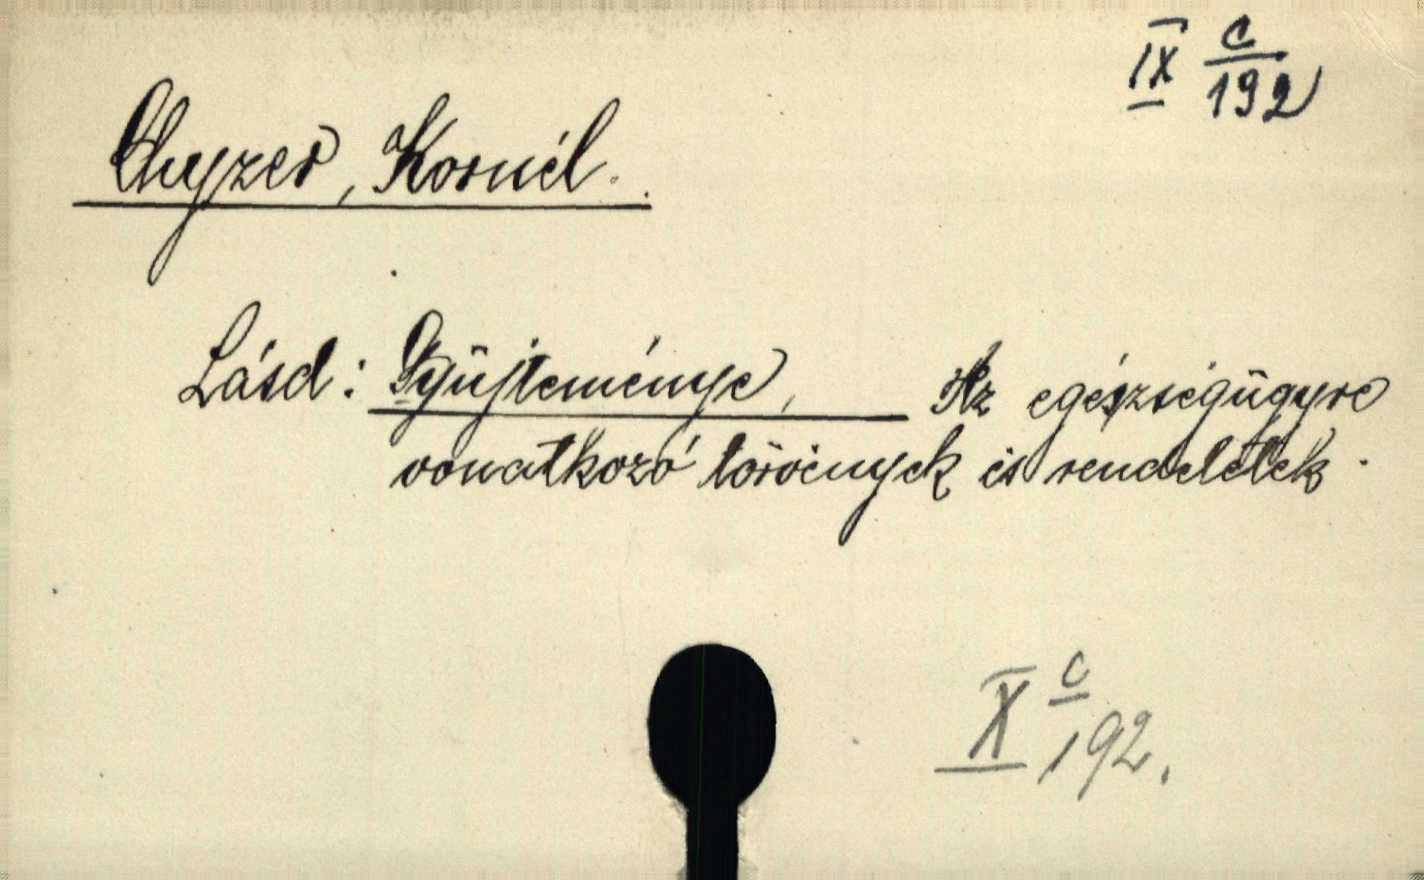 IX c/192
Chyzer, Kornél.
Lásd: Gyüjteménye, Az egészségügyre
vonatkozó törvények és rendeletek.
X c/192.